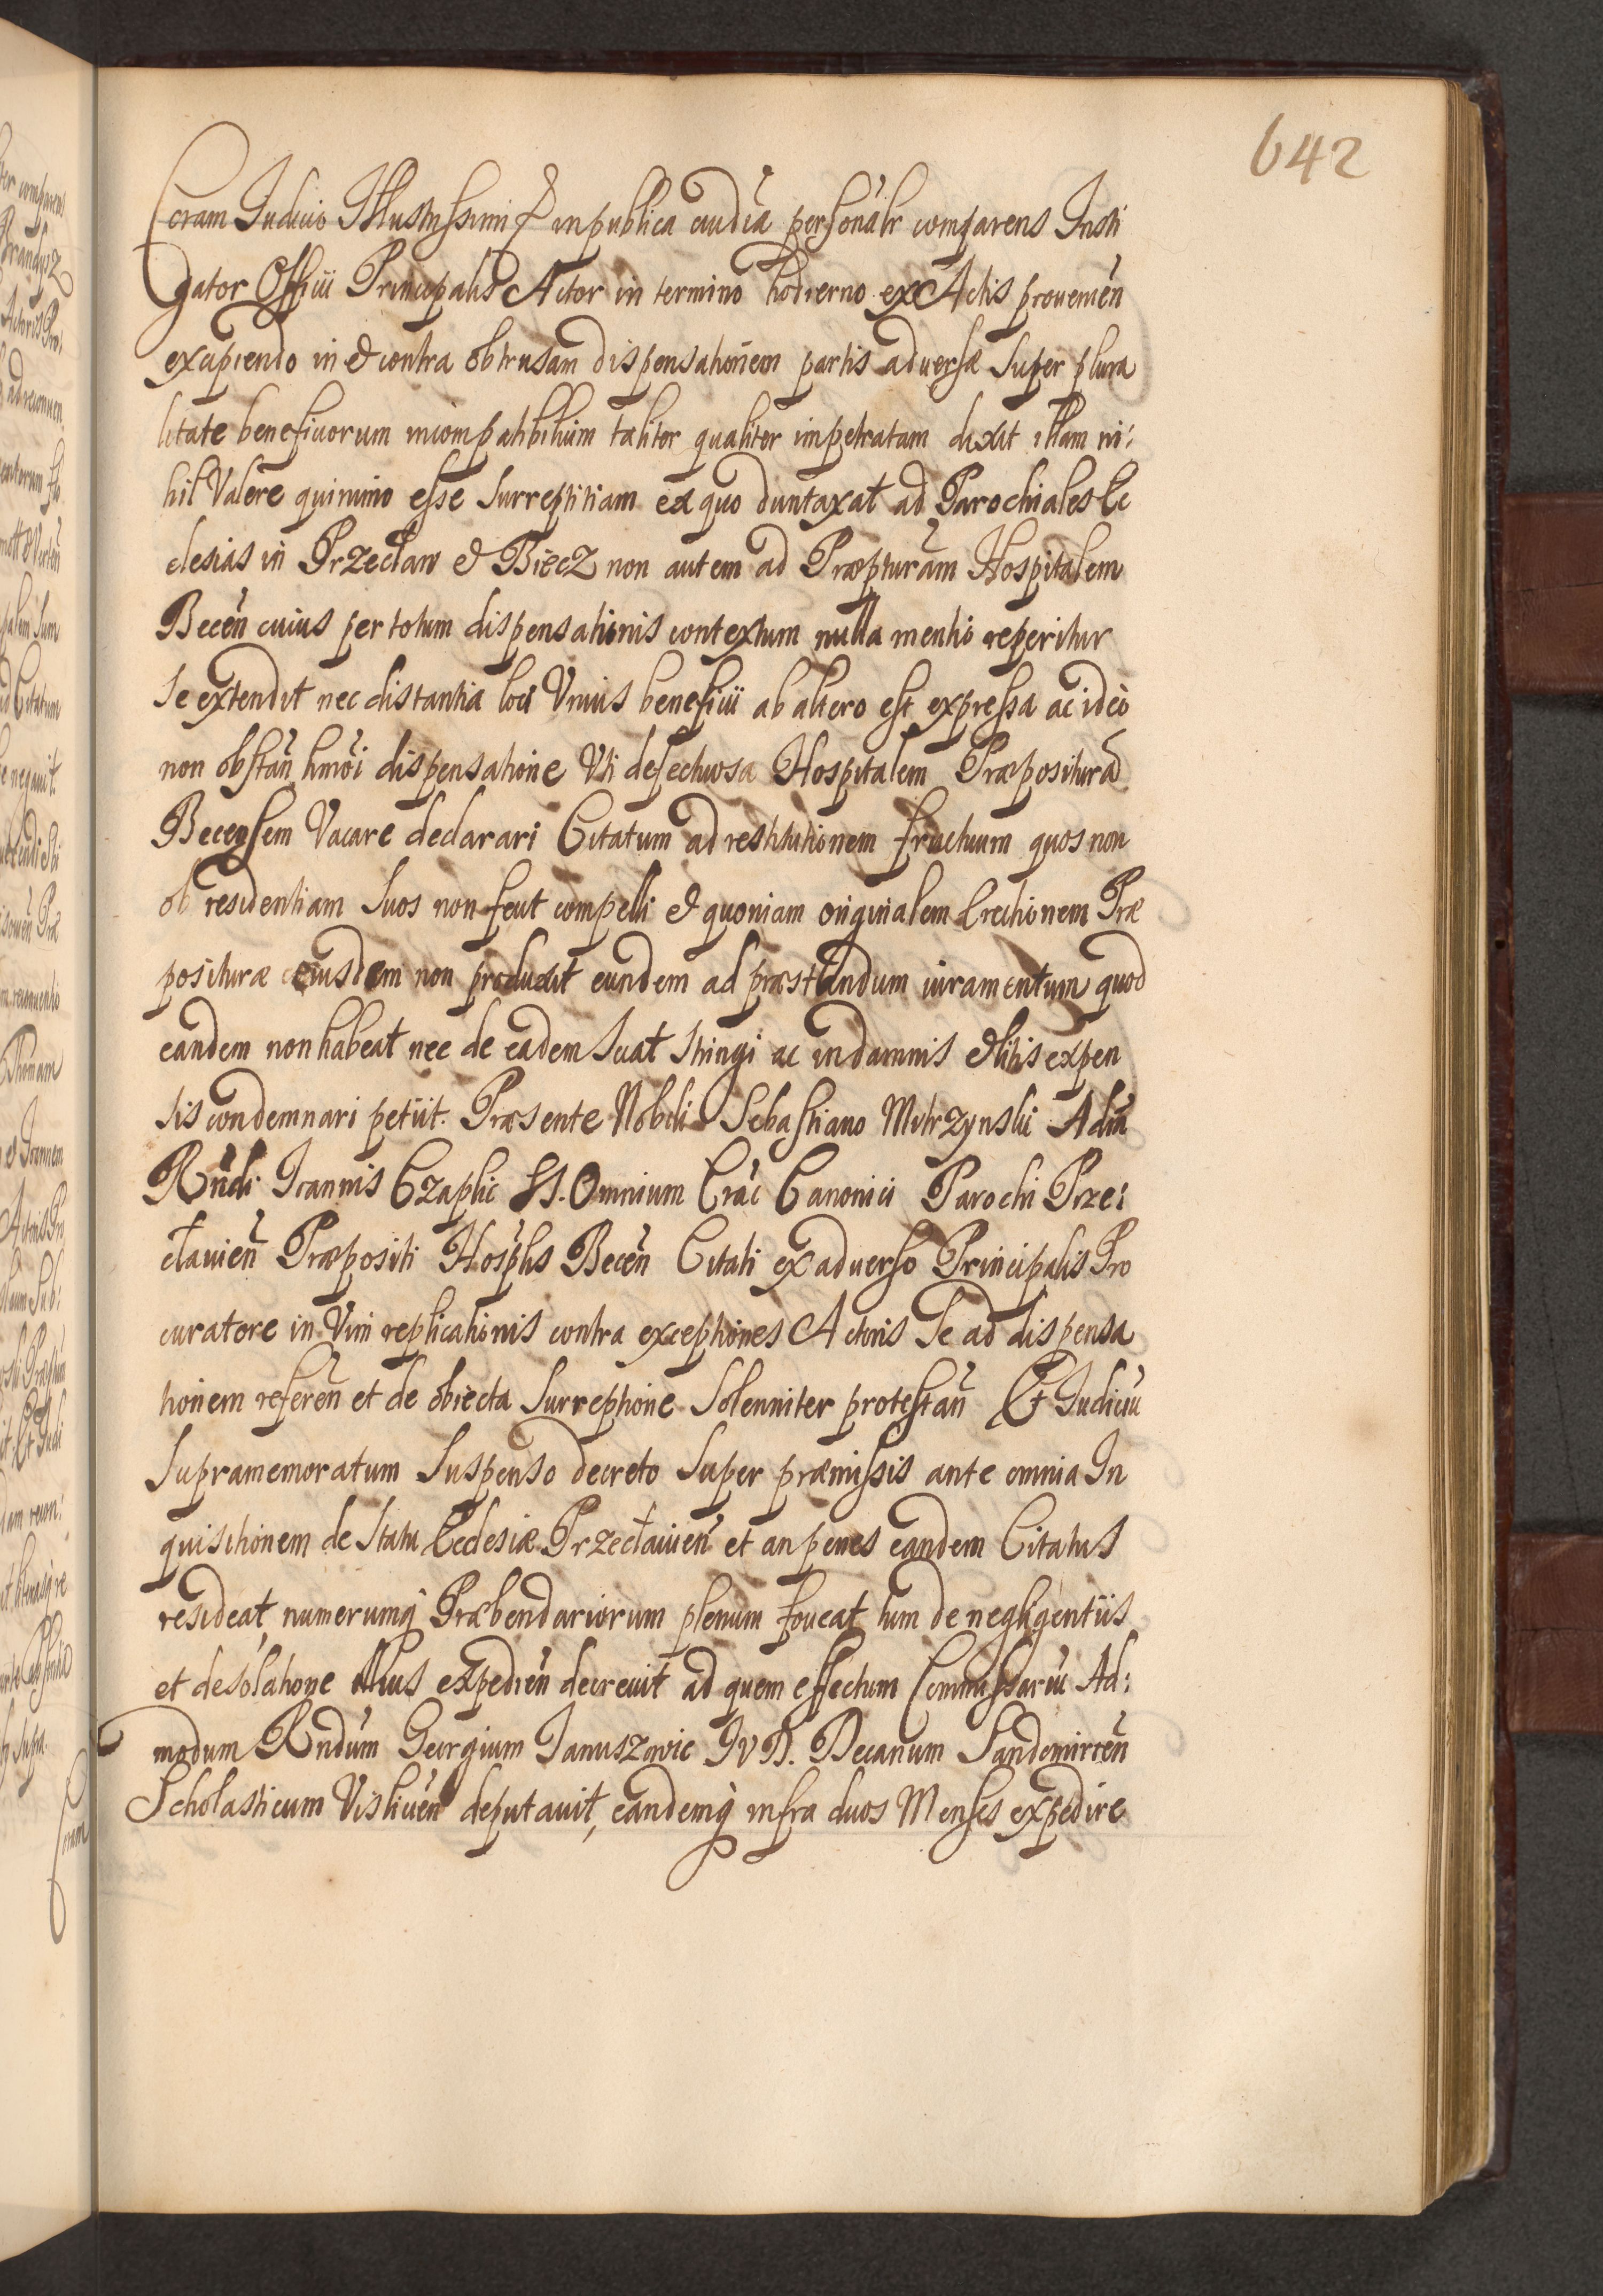 642
Coram Judicio Illustrissimi & in publica audīa personālr comparens Insti
gator Officii Principalis Actor in termino hodierno ex Actis provenieñ
excipiendo in & contra obtrusam dispensationem partis adversæ super plura
litate beneficiorum incompatibilium taliter qualiter impetratam dixit illam ni:
hil Valere quinimo esse surreptitiam ex quo duntaxat ad Parochiales Ec
clesias in Przecław & Biecz non autem ad Præpturam Hospitalem
Becen̄ cuius per totum dispensationis contextum nulla mentio reperitur
se extendit nec distantia loci Vnius beneficii ab altero est expressa ac ideò
non obstan̄ hmōi dispensatione Vti defectuosa Hospitalem Præposituram̄
Becensem Vacare declarari Citatum ad restitutionem fructuum quos non
ob residentiam suos non fecit compelli & quoniam originalem Erectionem Præ
posituræ eiusdem non produxit eundem ad præstandum iuramentum quod
eandem non habeat nec de eadem sciat stringi ac in damnis & litis expen
sis condemnari petiit. Præsente Nobili Sebastiano Mstrzynski Adm̄
Rn̄di Ioannis Czaplic SS. Omnium Crac̄ Canonici Parochi Prze:
cłavien̄ Præpositi Hosplīs Becen̄ Citati ex adverso Principalis Pro
curatore in Vim replicationis contra exceptiones Actoris se ad dispensa
tionem referen̄ et de obiecta surreptione solenniter protestan̄ Et Judiciū
supramemoratum suspenso decreto super præmissis ante omnia In
quisitionem de statu Ecclesiæ Przecłavien̄ et an penes eandem Citatus
resideat, numerumq Præbendariorum plenum foveat tum de negligentiis
et desolatione illius expedien̄ decrevit ad quem effectum Commissariū Ad:
modum Rndūm Georgium Januszowic JVD. Decanum Sandomirien̄
Scholasticum Vislicien̄ deputavit, eandemq infra duos Menses expedire